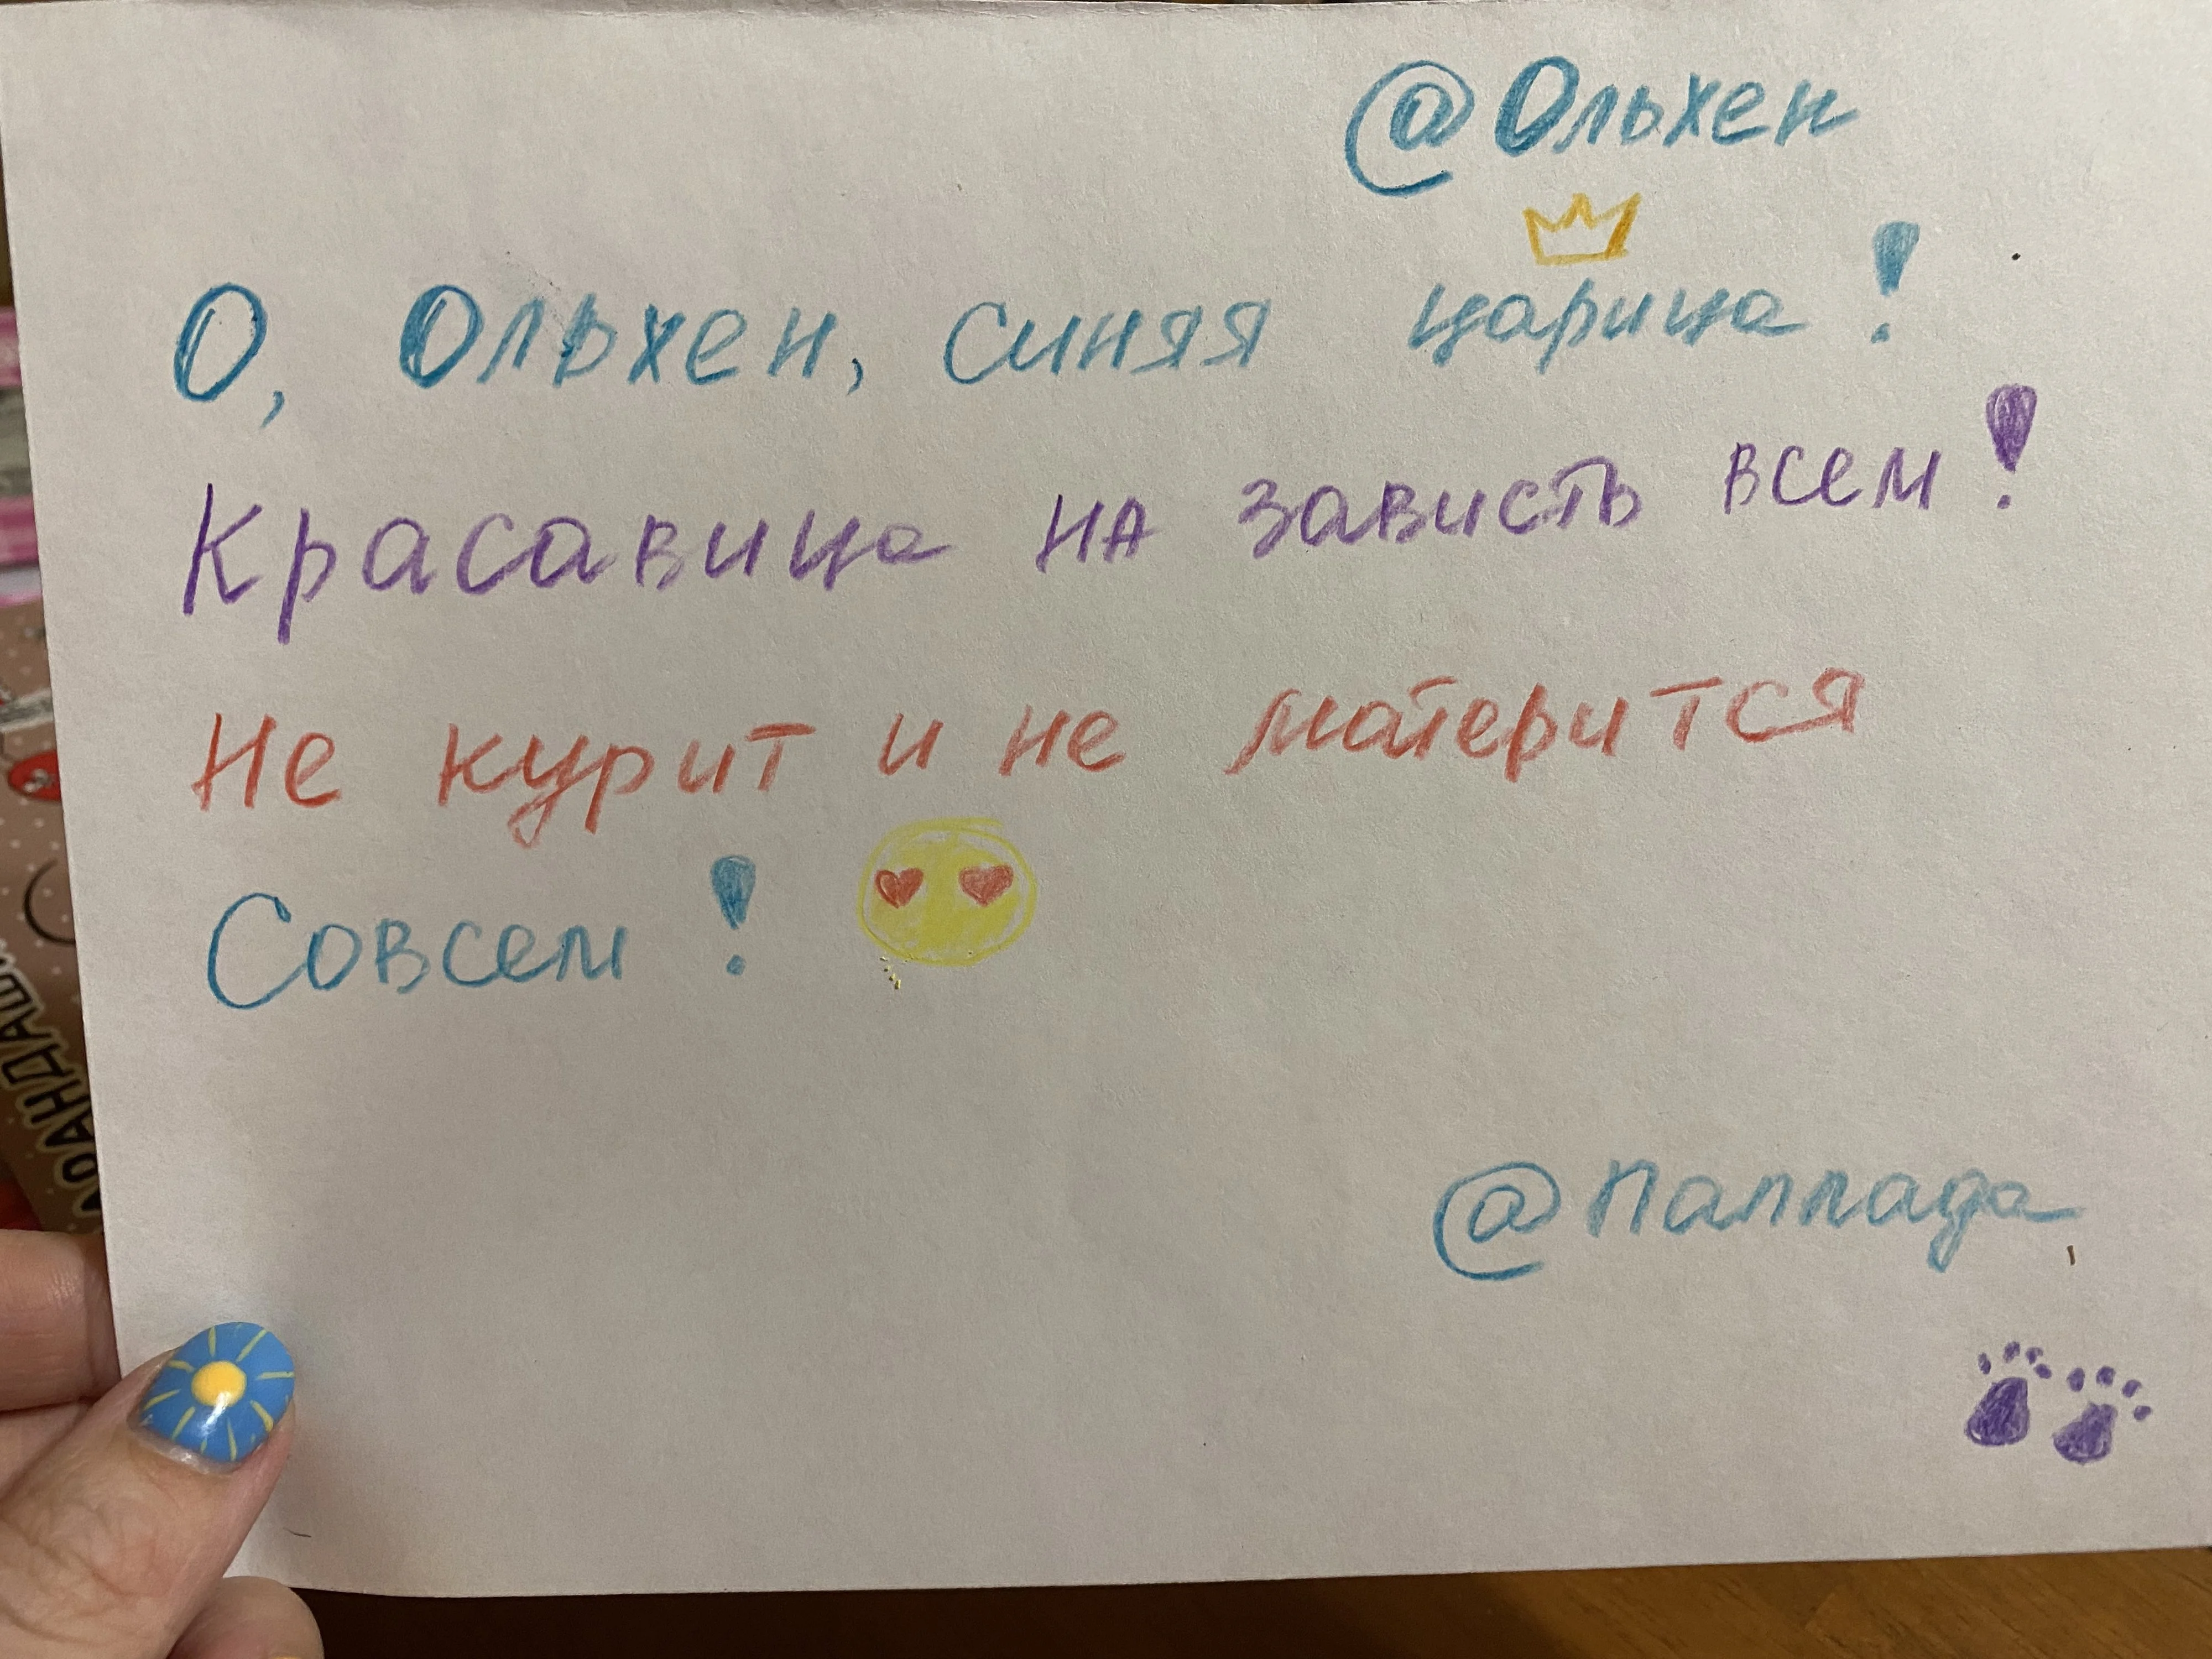 @Ольхен
О, Ольхен, синяя царица!
Красавица на зависть всем!
Не курит и не матерится
Совсем!
@Паллада